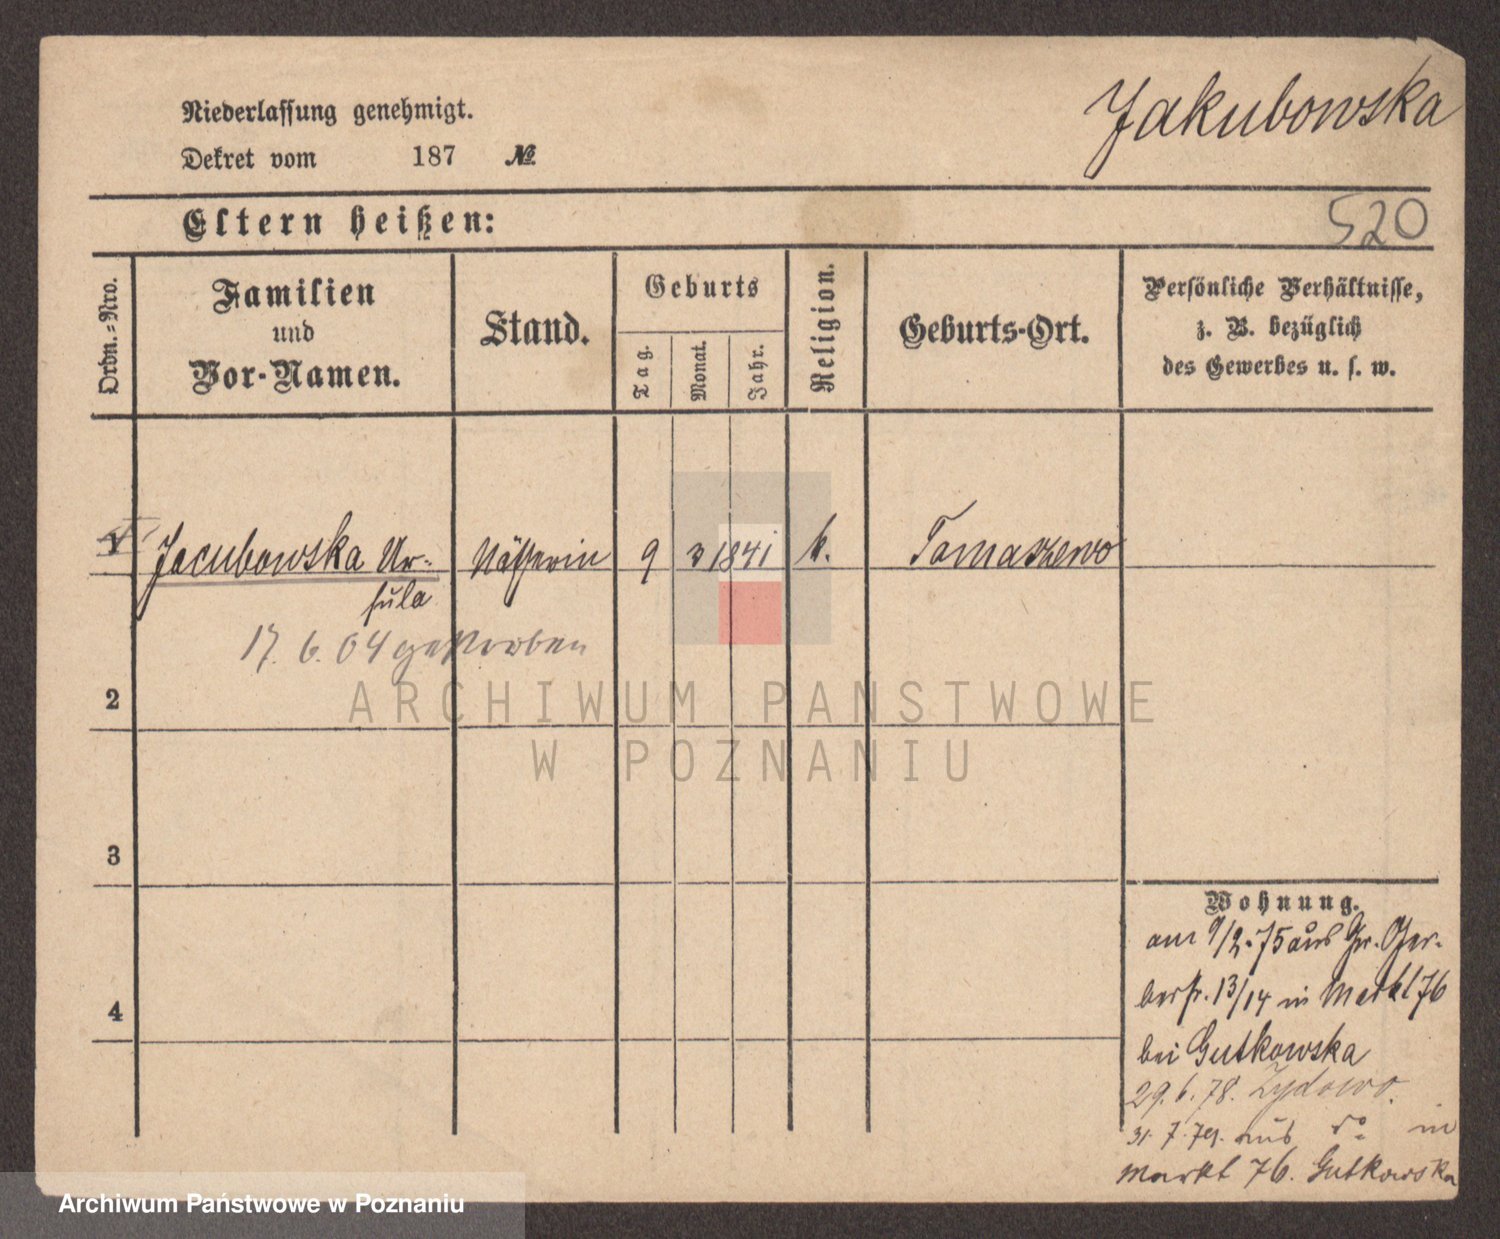 Jakubowska
Niederlassung genehmigt.
Dekret vom 187 №
Eltern heißen:
520
Ordn.=Nro.
Familien
und
Vor-Namen.
Stand.
Geburts
Tag.
Monat.
Jahr.
Religion.
Geburts-Ort.
Persönliche Verhältnisse,
z. B. bezüglich
des Gewerbes u. s. w.
1 Jacubowska Ur- Nätherin 9 3 1841 k. Tomaszewo
sula
17. 6. 04 gestorben
2
ARCHIWUM PAŃSTWOWE
W POZNANIU
3
4
Wohnung.
am 9/2. 75 aus Gr. Ger-
berstr. 13/14 in Markt 76
bei Gutkowska
29. 6. 78. Zydowo.
31. 7. 79. aus do in
Markt 76. Gutkowska
Archiwum Państwowe w Poznaniu